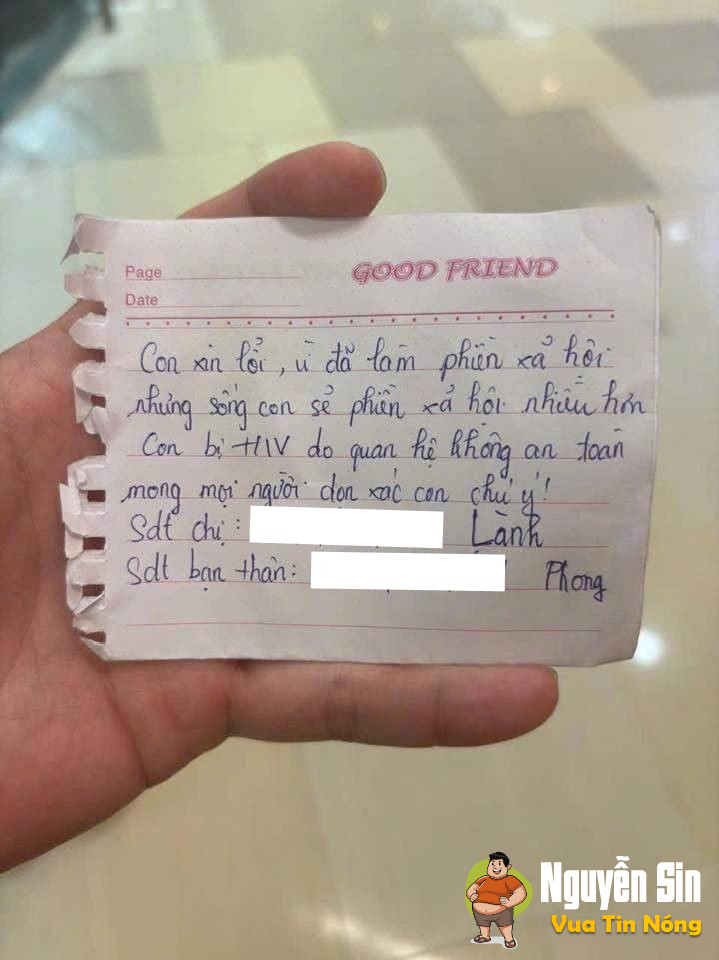 Page
GOOD FRIEND
Date
Con xin lổi, vì đã làm phiền xả hội
nhưng sống con sẻ phiền xả hội nhiều hơn
Con bị HIV do quan hệ không an toàn
mong mọi người dọn xác con chú ý!
Sdt chị: Lành
Sdt bạn thân: Phong
Nguyễn Sin
Vua Tin Nóng